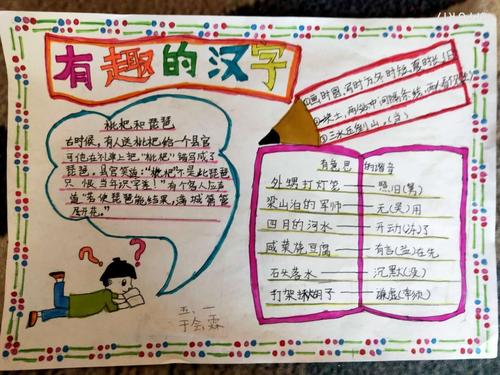 有趣的汉字
枇杷和琵琶
古时候,有人送枇杷给一个县官
可他在礼单上把"枇杷"错写成了
琵琶。县官笑道:"枇杷"不是此琵琶
只恨当年识字差!"有个客人应声
道"若使琵琶能结果,满城箫管
尽开花。"
①画时圆,写时方,冬时短,夏时长。(日)
②一块土,两
③三水压倒山。(当)
有意思的谐音
外甥打灯笼——照旧(舅)
梁山泊的军师——无(吴)用
四月的河水——开动(冻)了
咸菜烧豆腐——有言(盐)在先
石头落水——沉默(没)
打架揪胡子——谦虚(牵须)
五、一
于会霖